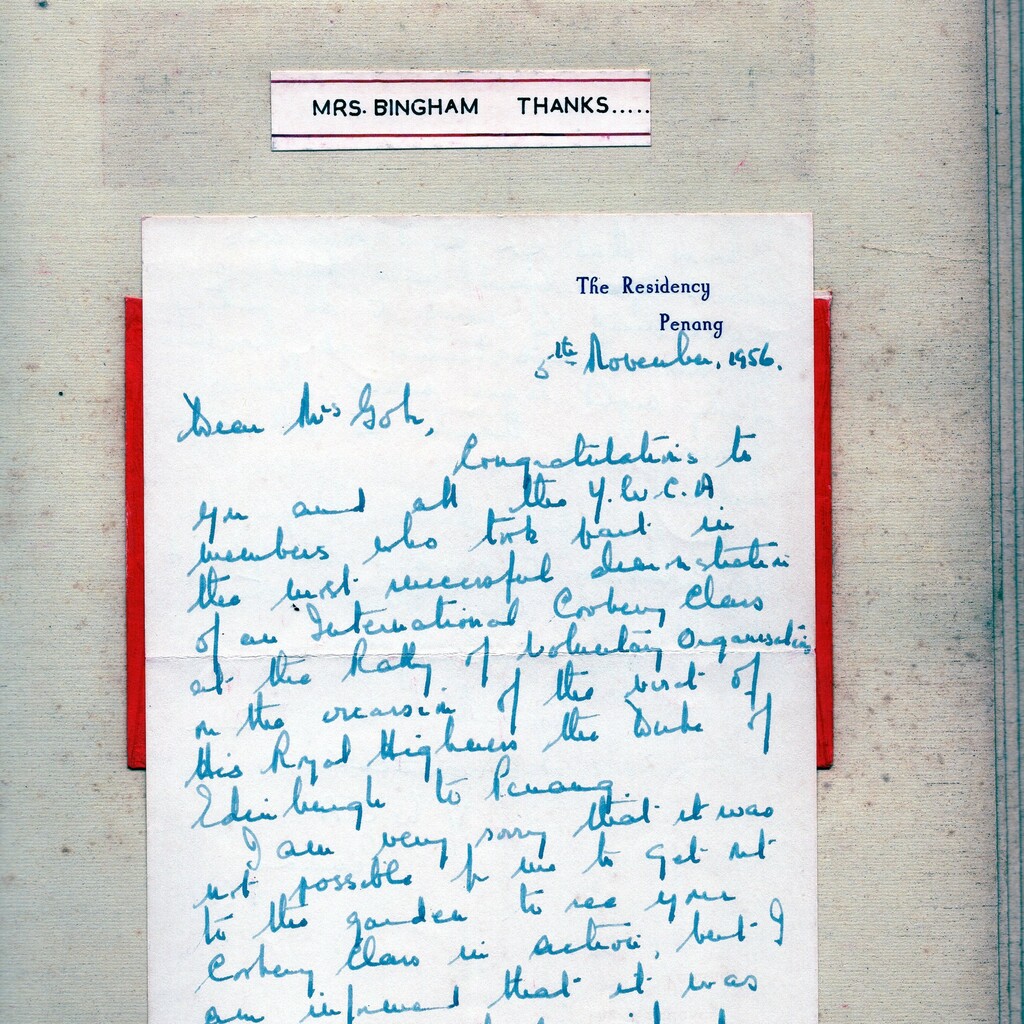 MRS. BINGHAM THANKS.....
The Residency
Penang
5th November, 1956.
Dear Mrs Goh,
Congratulations to
you and all the Y.W.C.A
members who took part in
the most successful demonstration
of an International Cookery Class
at the Rally of Voluntary Organisations
on the occasion of the visit of
His Royal Highness the Duke of
Edinburgh to Penang.
I am very sorry that it was
not possible for me to get out
to the garden to see your
Cookery Class in action, but I
am informed that it was